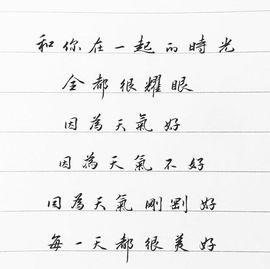 和你在一起的時光
全都很耀眼
因為天氣好
因為天氣不好
因為天氣剛剛好
每一天都很美好